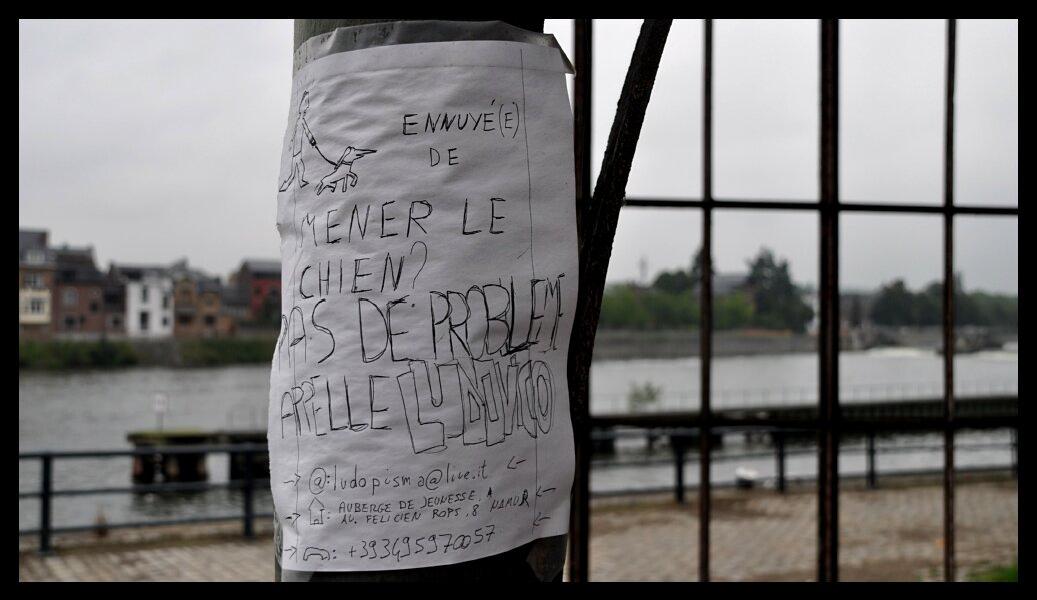 ENNUYÉ(E)
DE
MENER LE
CHIEN?
PAS DE PROBLEME
APPELLE LUDOVICO
@:ludopisma@live.it
AUBERGE DE JEUNESSE, A
AV. FELICIEN ROPS, 8 NAMUR
: +393495970057